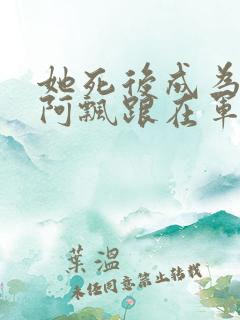 她死後成為
阿飄跟在軍
葉溫
未經同意禁止轉載